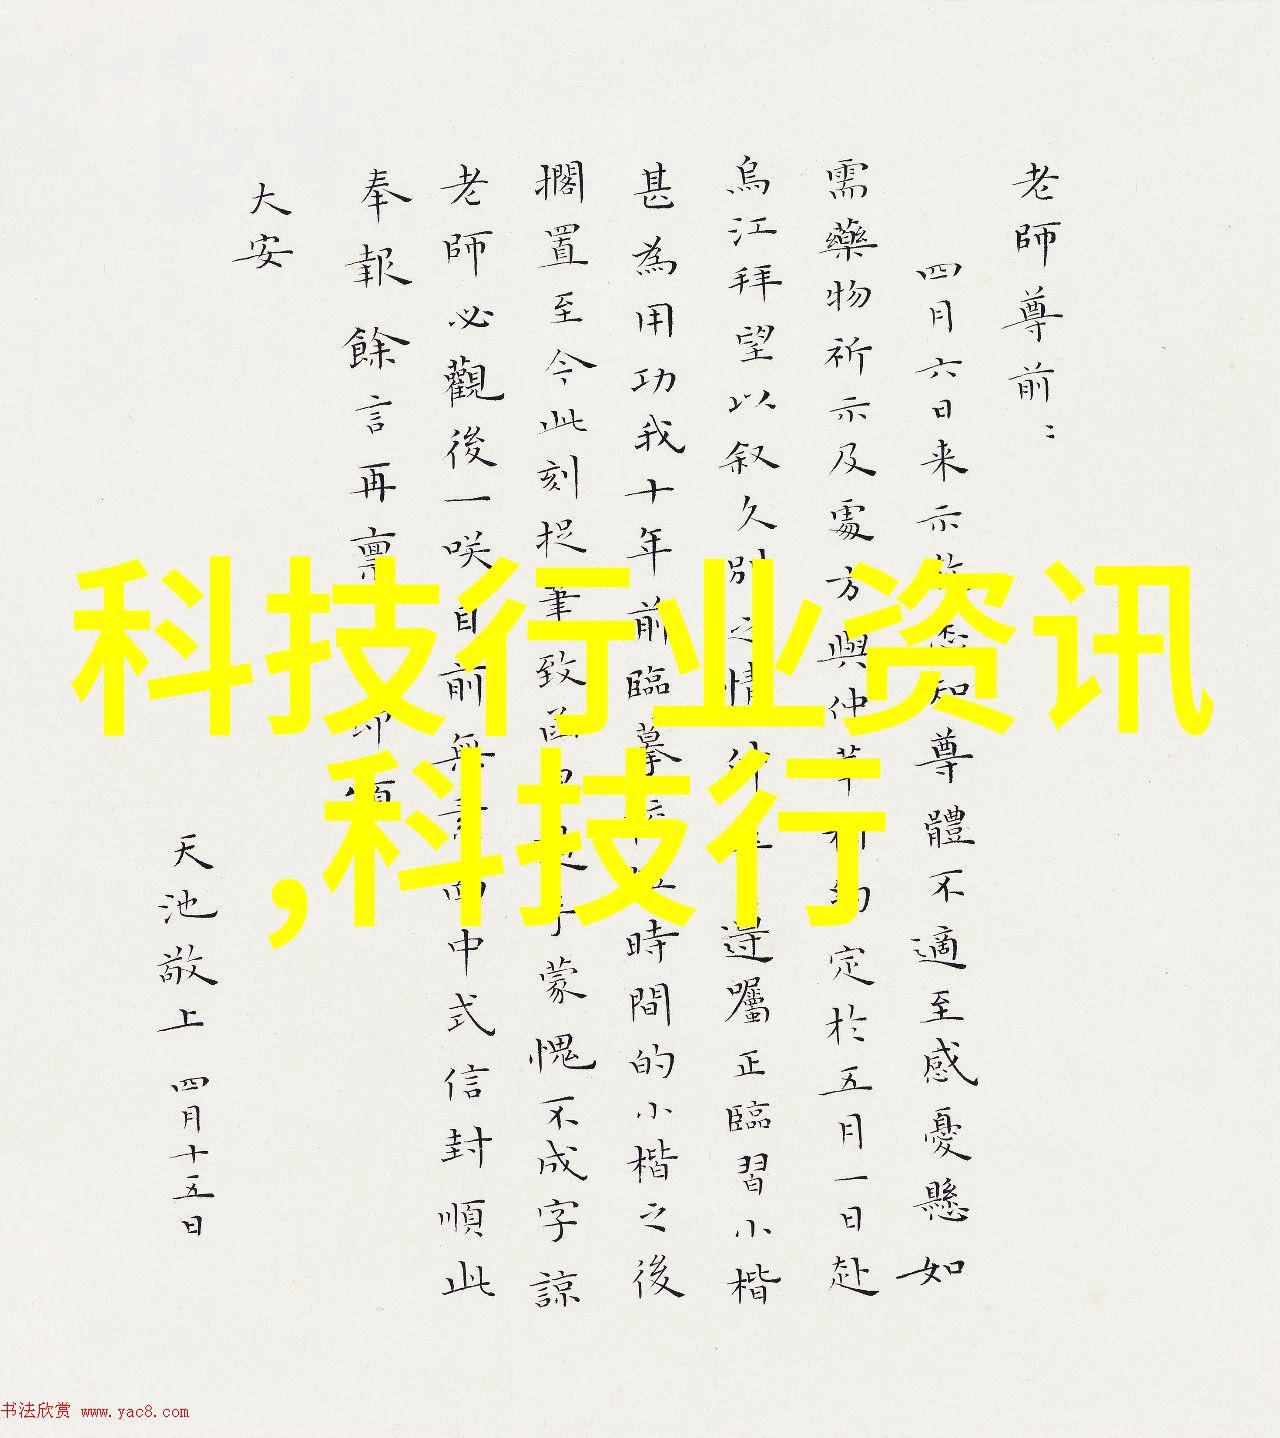 老師尊前：
四月六日来示知尊體不適至感憂懸如
需藥物祈示及處方與仲約定於五月一日赴
烏江拜望以叙久別之情遵囑正臨習小楷
甚為用功我十年前臨摹時間的小楷之後
擱置至今此刻捉筆致函手蒙愧不成字諒
老師必觀後一咲目前無素面中式信封順此
奉報餘言再禀 即頌
大安
天池敬上 四月十五日
科技行业资讯
,科技行
书法欣赏 www.yac8.com